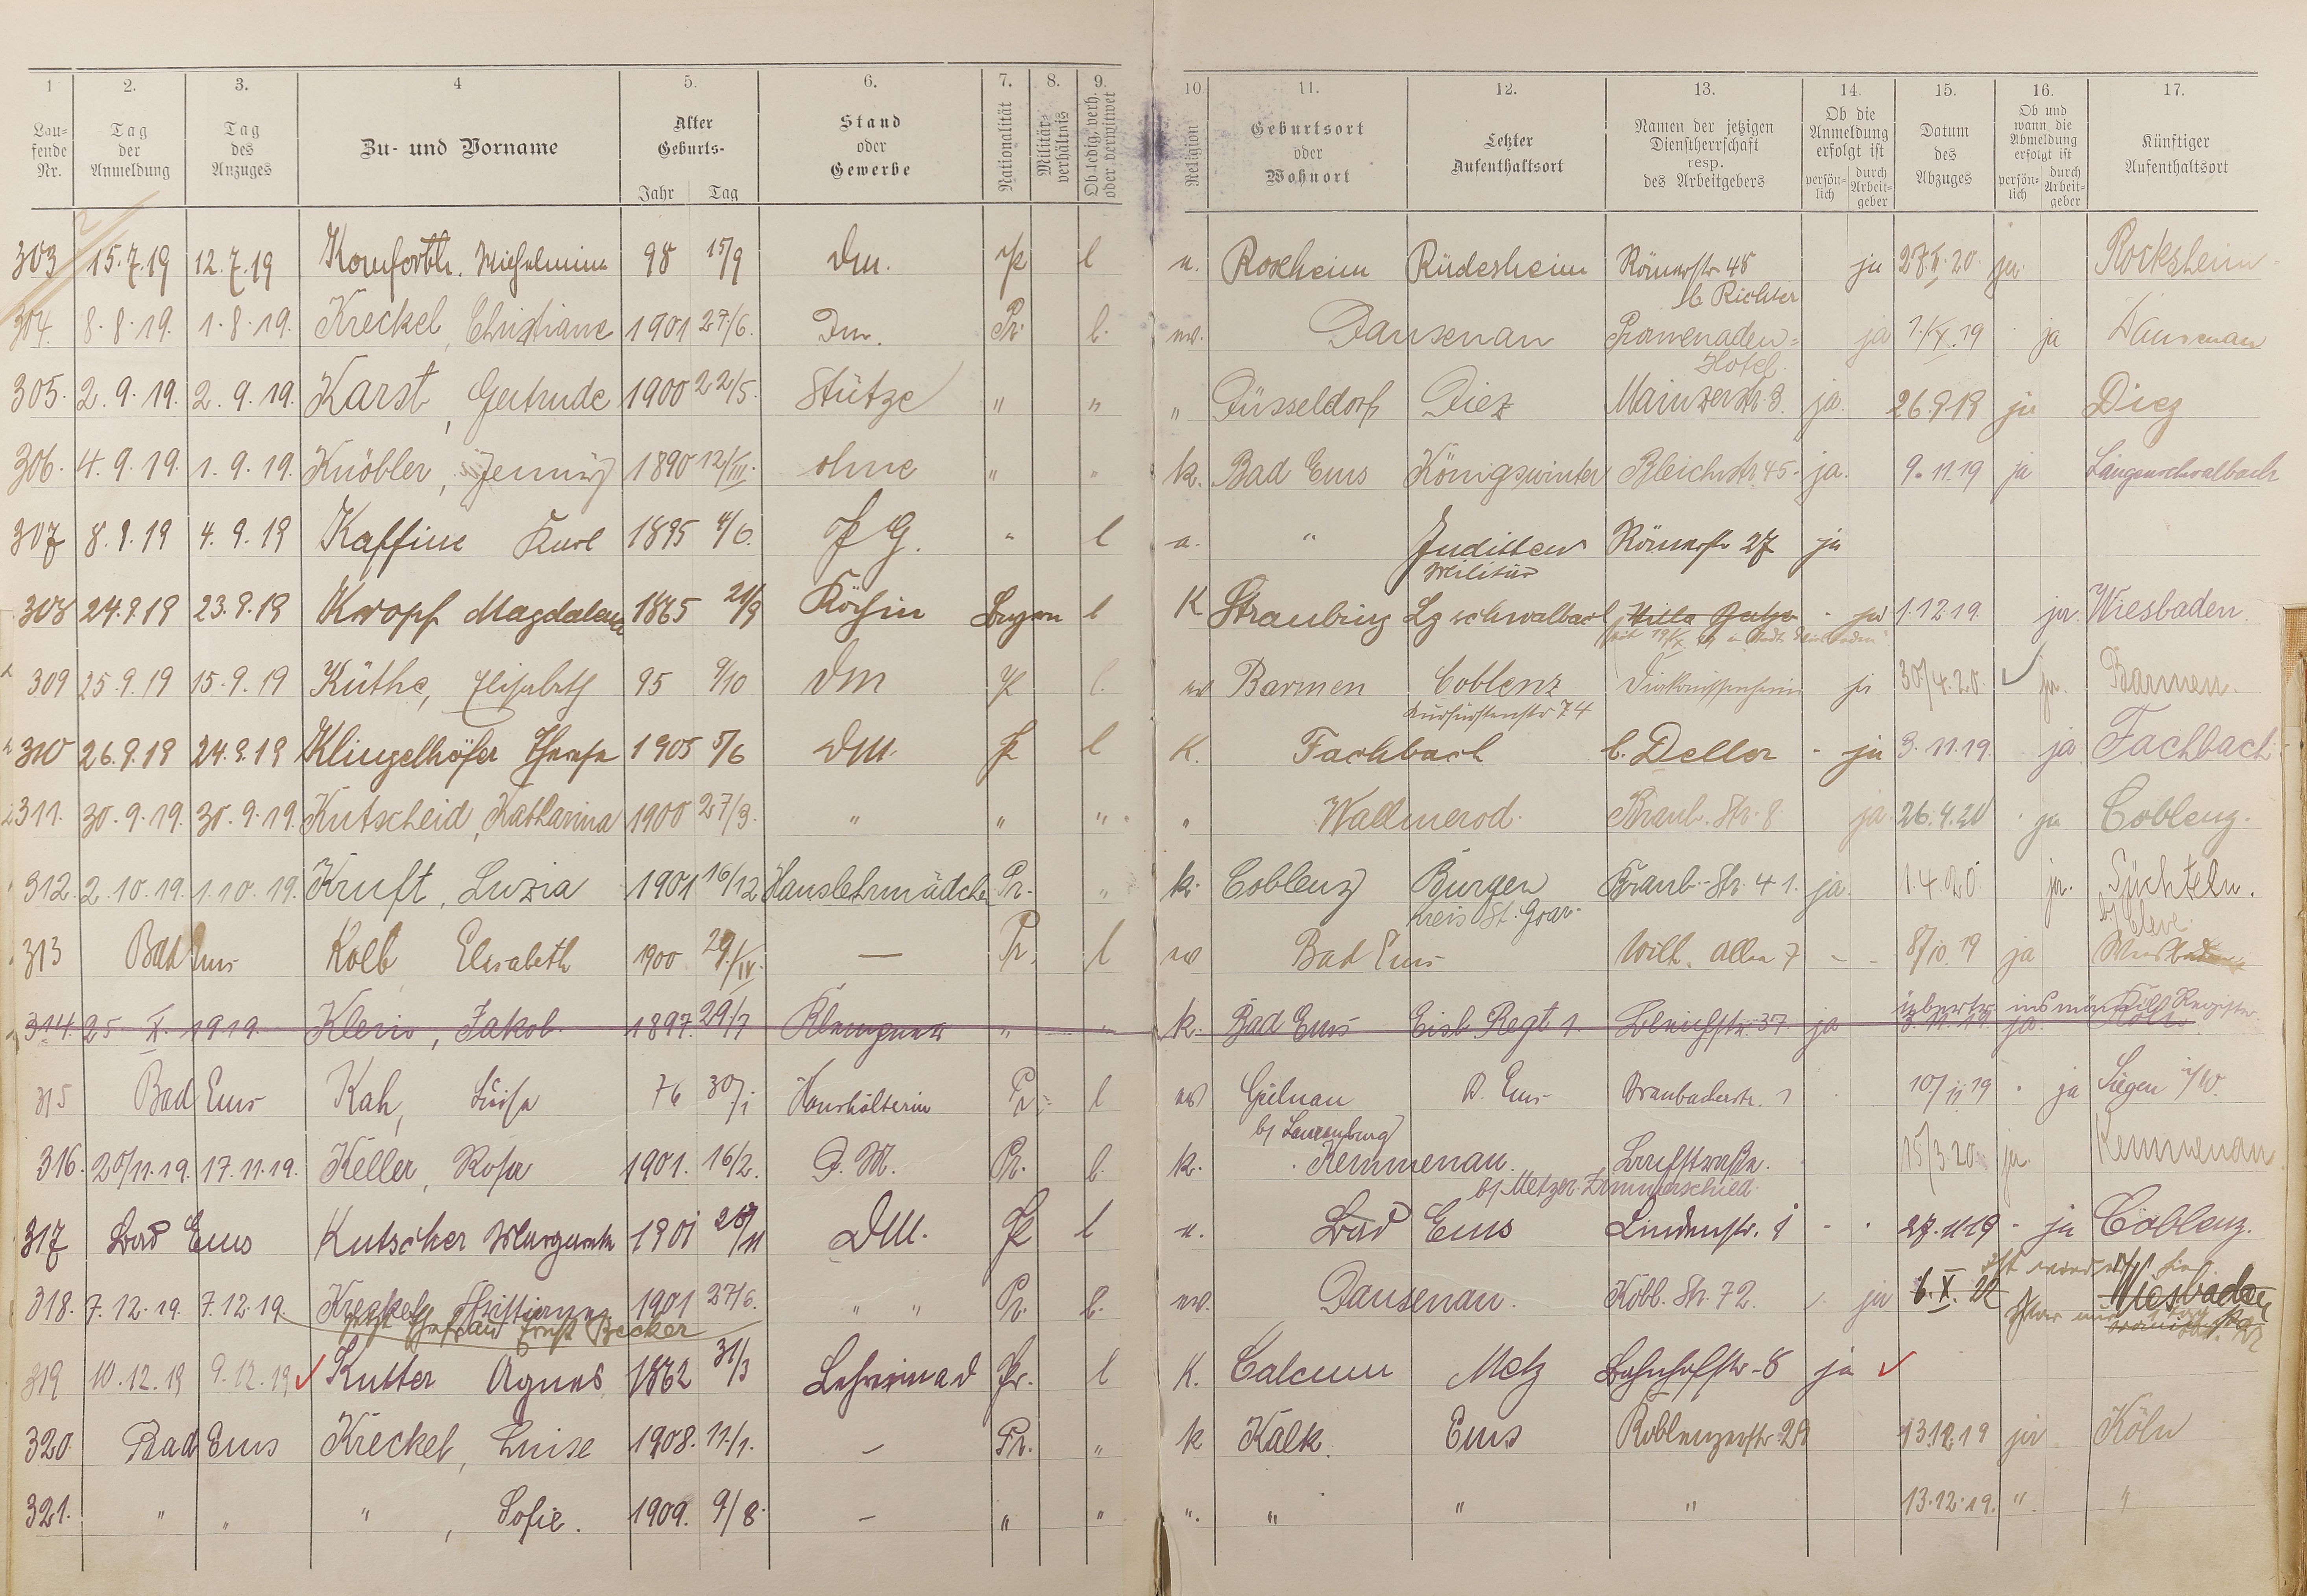 1 2. 3. 4 5. 6. 7. 8. 9. 10 11. 12. 13. 14. 15. 16. 17.
Lau-
fende
Nr.
Tag
der
Anmeldung
Tag
des
Anzuges
Zu- und Vorname
Alter
Geburts-
Jahr Tag
Stand
oder
Gewerbe
Nationalität
Militär-
verhältnis
Ob ledig, verh.
oder verwitwet
Religion
Geburtsort
oder
Wohnort
Letzter
Aufenthaltsort
Namen der jetzigen
Dienstherrschaft
resp.
des Arbeitgebers
Ob die
Anmeldung
erfolgt ist
persön-
lich
durch
Arbeit-
geber
Datum
des
Abzuges
Ob und
wann die
Abmeldung
erfolgt ist
persön-
lich
durch
Arbeit-
geber
Künftiger
Aufenthaltsort
303 15.7.19 12.7.19 Komforth. Wilhelmine 98 15/9 Dm. P l a. Roxheim Rüdesheim Römerstr. 48 ja 27.X.20. ja Rocksheim
b Richter
304. 8.8.19. 1.8.19. Kreckel, Christiane 1901 27/6. Dm. Pr. l. ev. Dausenau Promenaden= ja 1./X.19 ja Dausenau
Hotel.
305. 2.9.19. 2.9.19. Karst, Gertrude 1900 22/5. Stütze " " " Düsseldorf Diez Mainzerstr. 8. ja. 26.9.19 ja Diez
306. 4.9.19. 1.9.19. Knöbler, Jenny 1890 12/III. ohne " " k. Bad Ems Königswinter Bleichstr. 45. ja. 9.11.19 ja Langenschwalbach
307 8.9.19 4.9.19 Kaffine Karl 1895 4/6. J G. " l a. " Juditten Römerstr 27 ja
Militär
308 24.9.19 23.9.19 Kropf Magdalena 1865 21/9 Köchin Bayern l K Straubing Lg schwalbach Villa ja 1.12.19. ja. Wiesbaden.
309 25.9.19 15.9.19 Küthe, Elisabeth 95 9/10 Dm P l. ev Barmen Coblenz Diakonissenheim ja 30/4.20. ja. Barmen.
Kurfürstenstr 74
310 26.9.19 24.9.19 Klingelhöfer Therese 1905 5/6 Dm. P l K. Fachbach b. Deller - ja 3.11.19. ja Fachbach
311. 30.9.19. 30.9.19. Kutscheid, Katharina 1900 27/9. " " " " Wallmerod. Braub. Str. 8 ja 26.4.20 ja Coblenz.
312. 2.10.19. 1.10.19. Kruft, Luzia 1901 16/12 Hauslehrmädchen Pr. " k. Coblenz Burgen Braub.-Str. 41. ja. 1.4.20 ja. Süchteln.
Kreis St. Goar. b/ Cleve.
313 Bad Ems Kolb Elisabeth 1900 29./IV. — Pr. l ev Bad Ems Wilh. Allee 7 - - 8/10.19 ja Wiesbaden
314. 25. X. 1919. Klein, Jakob. 1897. 29./7 Klempner " " k. Bad Ems Eisb Regt 1. Bleichstr. 37. ja ins männl. Register
315 Bad Ems Kah, Luise 76 30/I Haushälterin Pr. l ev Geilnau B. Ems Braubacherstr. 1 10/11 19 ja Siegen i/W.
b/ Laurenburg
316. 20/11.19. 17.11.19. Keller, Rosa 1901. 16/2. D. M. Pr. l. k. Kemmenau. 15/3.20 ja Kemmenau
b/ Metzger Zimmerschied.
317 Bad Ems Kutscher Margarete 1901 28/11 DM. P l a. Bad Ems Lindenstr. 1 - 27.11.19 - ja Coblenz.
318. 7.12.19. 7.12.19. Kreckel, Christiane 1901 27/6. " " Pr. l. ev. Dausenau. Kobl. Str. 72. ja 6.X.22 Wiesbaden
jetzt Ehefrau Ernst Becker
319 10.12.19 9.12.19 Kutter Agnes 1862 31/3 Lehrerin a.d Pr. l K. Calcum Metz Bahnhofstr. 8 ja
320. Bad Ems Kreckel, Luise 1908. 11./1. — Pr. " k Kalk. Ems Koblenzerstr. 29 13.12.19 ja Köln
321. " " " , Sofie. 1909. 9/8. — " " ". " " " 13.12.19. " "